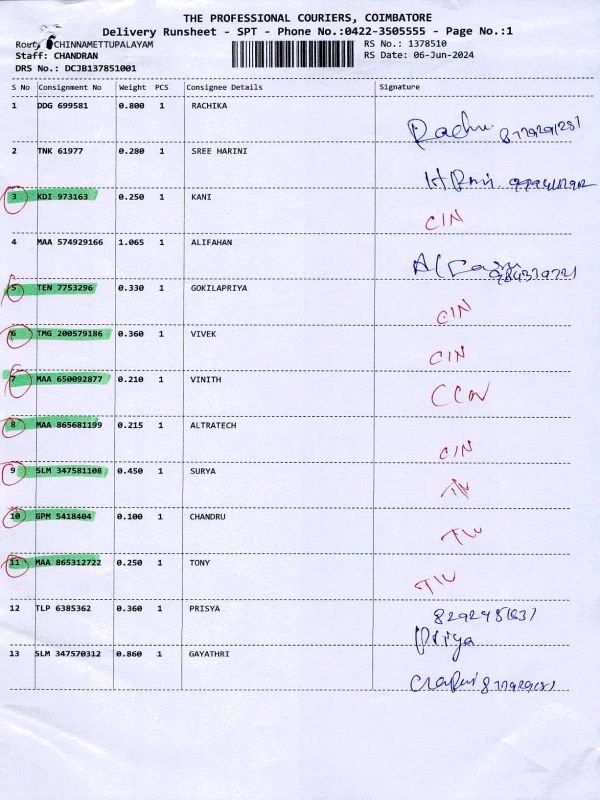 THE PROFESSIONAL COURIERS, COIMBATORE
Delivery Runsheet - SPT - Phone No.:0422-3505555 - Page No.:1
CHINNAMETTUPALAYAM RS No.: 1378510
Staff: CHANDRAN RS Date: 06-Jun-2024
DRS No.: DCJB137851001
S No Consignment No Weight PCS Consignee Details Signature
1 DDG 699581 0.800 1 RACHIKA
2 TNK 61977 0.280 1 SREE HARINI
3 KDI 973163 0.250 1 KANI CIN
4 MAA 574929166 1.065 1 ALIFAHAN
5 TEN 7753296 0.330 1 GOKILAPRIYA CIN
6 TMG 200579186 0.360 1 VIVEK CIN
7 MAA 650092877 0.210 1 VINITH
8 MAA 865681199 0.215 1 ALTRATECH CIN
9 SLM 347581108 0.450 1 SURYA
10 GPM 5418404 0.100 1 CHANDRU
11 MAA 865312722 0.250 1 TONY
12 TLP 6385362 0.360 1 PRISYA
Priya
13 SLM 347570312 0.860 1 GAYATHRI